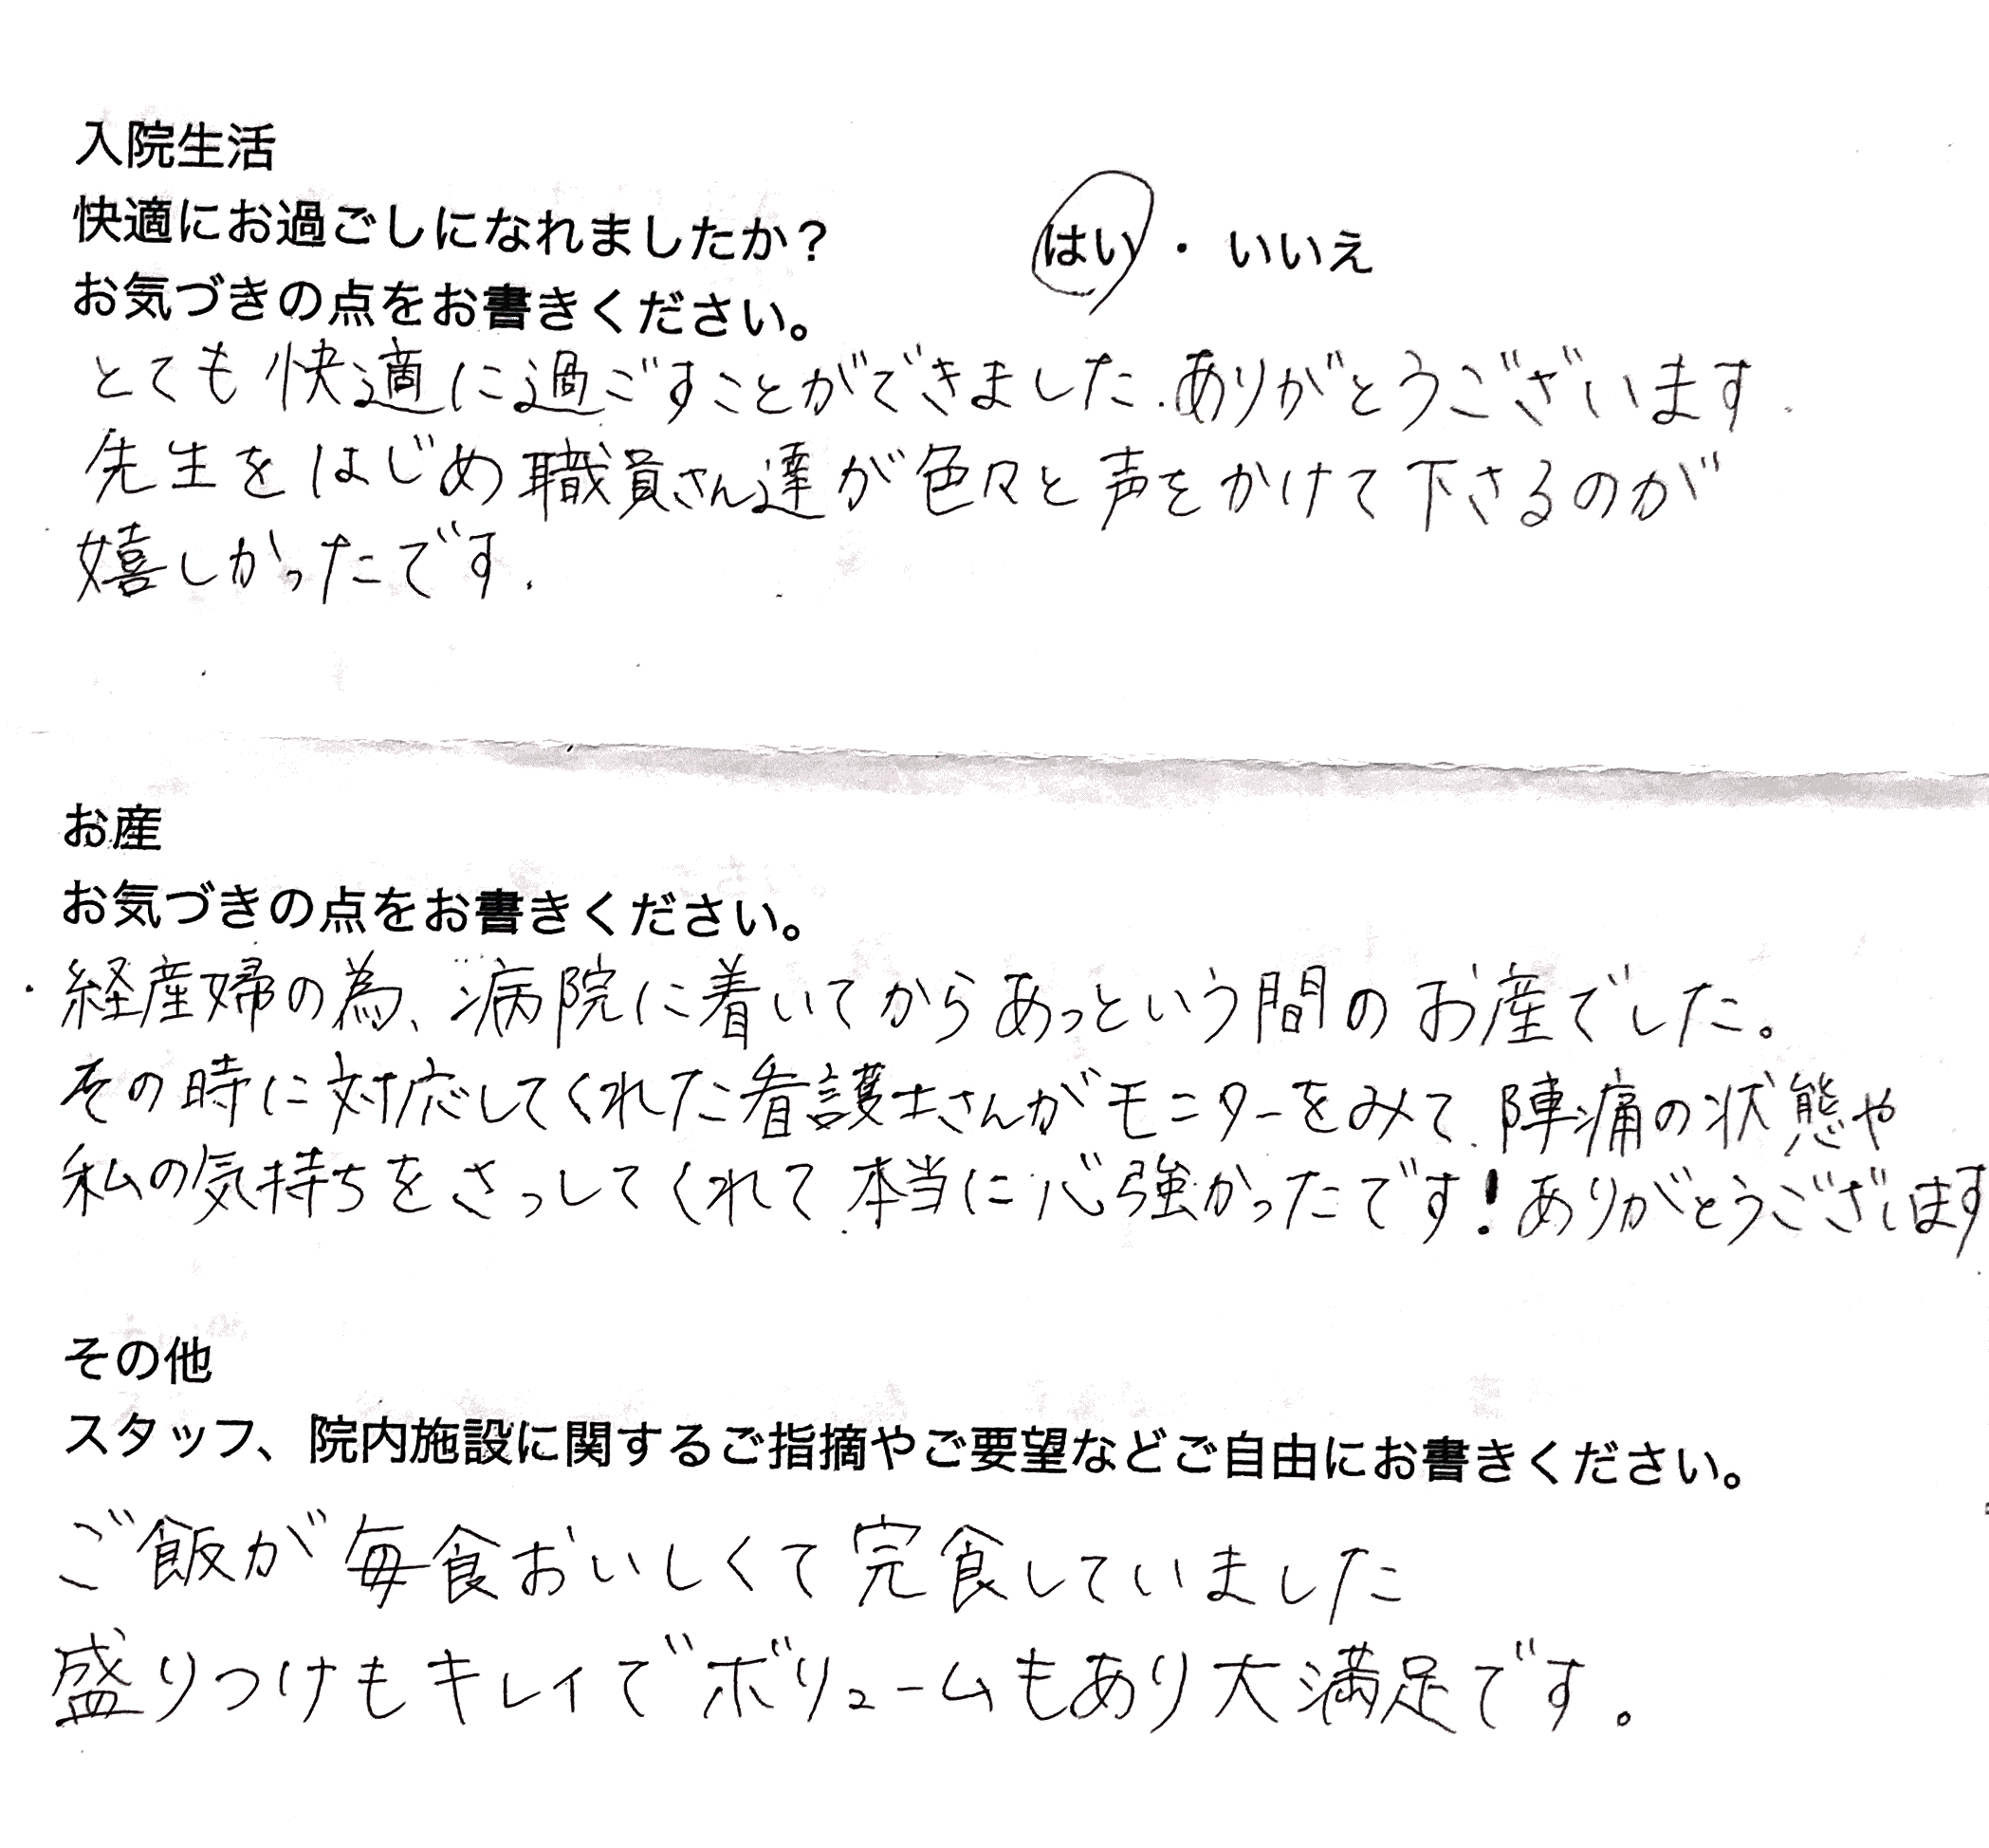 入院生活
快適にお過ごしになれましたか？ はい・いいえ
お気づきの点をお書きください。
とても快適に過ごすことができました.ありがとうございます.
先生をはじめ職員さん達が色々と声をかけて下さるのが
嬉しかったです.
お産
お気づきの点をお書きください。
経産婦の為、病院に着いてからあっという間のお産でした。
その時に対応してくれた看護士さんがモニターをみて、陣痛の状態や
私の気持ちをさっしてくれて、本当に心強かったです!ありがとうございます
その他
スタッフ、院内施設に関するご指摘やご要望などご自由にお書きください。
ご飯が毎食おいしくて完食していました
盛りつけもキレイでボリュームもあり大満足です。